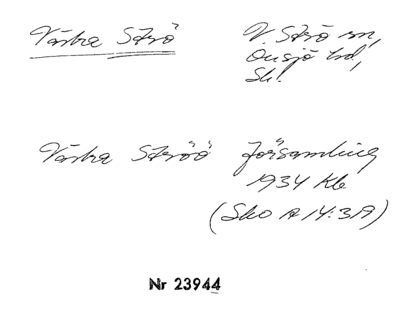 Västra Strö
V. Strö sn,
Onsjö hd,
Sk.
Västra Ströö församling
1934 Kb
(Sko A 14:319)
Nr 23944